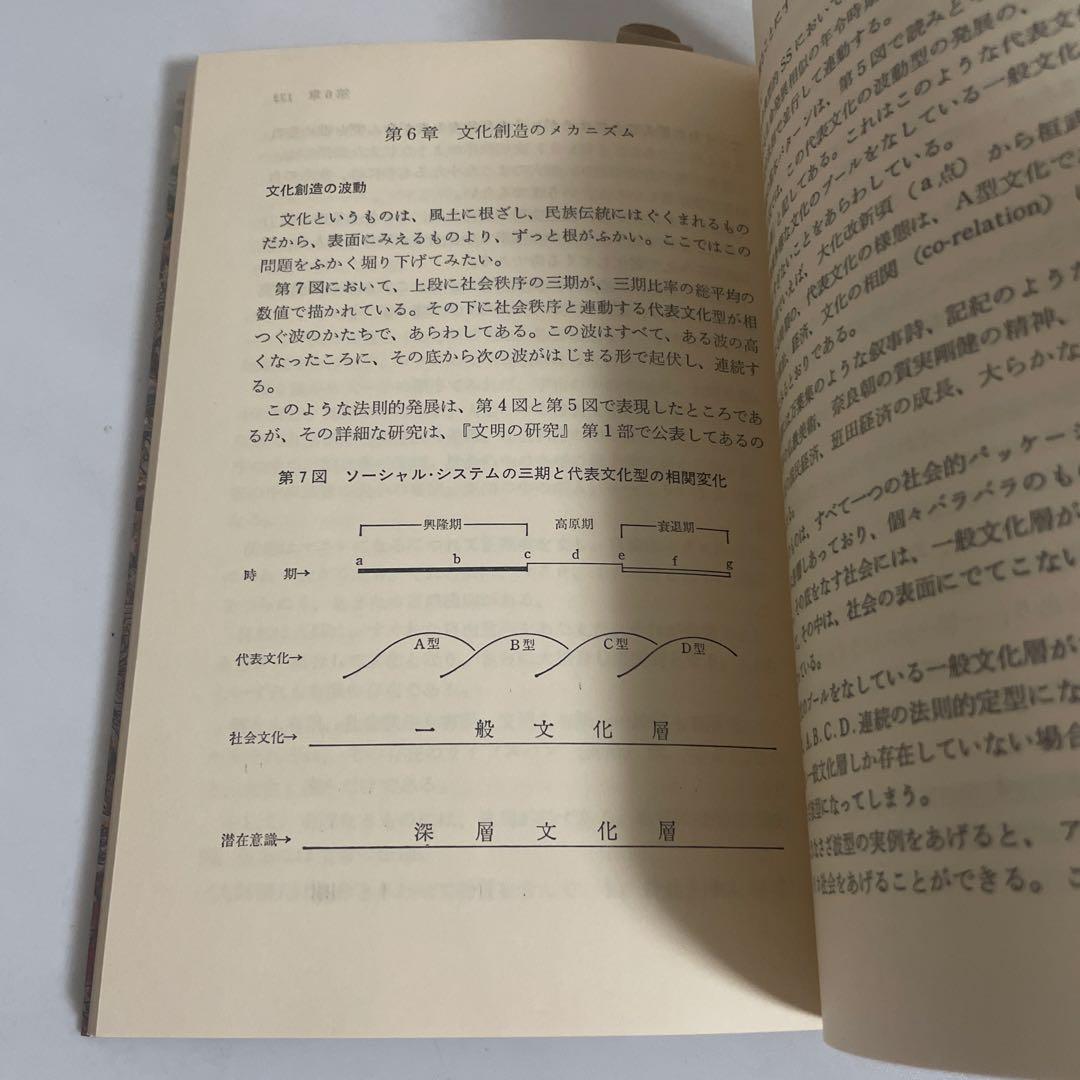 第6章　文化創造のメカニズム
文化創造の波動
文化というものは、風土に根ざし、民族伝統にはぐくまれるもの
だから、表面にみえるものより、ずっと根がふかい。ここではこの
問題をふかく堀り下げてみたい。
第7図において、上段に社会秩序の三期が、三期比率の総平均の
数値で描かれている。その下に社会秩序と連動する代表文化型が相
つぐ波のかたちで、あらわしてある。この波はすべて、ある波の高
くなったころに、その底から次の波がはじまる形で起伏し、連続す
る。
このような法則的発展は、第4図と第5図で表現したところであ
るが、その詳細な研究は、『文明の研究』第1部で公表してあるの
第7図　ソーシャル・システムの三期と代表文化型の相関変化
興隆期　高原期　衰退期
時　期→　a　b　c　d　e　f　g
代表文化→　A型　B型　C型　D型
社会文化→　一般文化層
潜在意識→　深層文化層
SSにおいて
発展相似の年令時
で並行して連動する。
ターンは、第5図で読みと
は、この代表文化の波動型の発展の、
してある。これはこのような代表文
な文化のプールをなしている一般文化
ないことをあらわしている。
いえば、大化改新頃（a点）から桓武
の、代表文化の様態は、A型文化で
経済、文化の相関（co-relation）
とおりである。
万葉集のような叙事時、記紀のような
美術、奈良朝の質実剛健の精神、
民経済、班田経済の成長、大らかな
は、すべて一つの社会的パッケー
しあっており、個々バラバラのもの
その底をなす社会には、一般文化層が
その中は、社会の表面にでてこない
ている。
プールをなしている一般文化層が
A.B.C.D.連続の法則的定型にな
一般文化層しか存在していない場合
型になってしまう。
なさざ波型の実例をあげると、ア
社会をあげることができる。こ